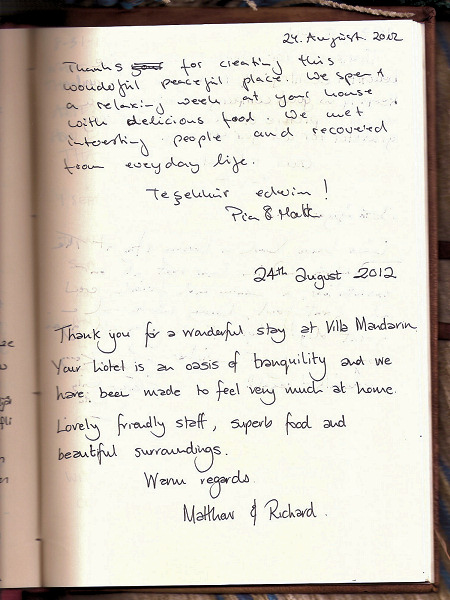 24. August. 2012
Thanks for creating this
wonderful peaceful place. We spent
a relaxing week at your house
with delicious food. We met
interesting people and recovered
from everyday life.
Teşekkür ederim!
Pia & Matth
24th august 2012
Thank you for a wonderful stay at Villa Mandarin
Your hotel is an oasis of tranquility and we
have been made to feel very much at home.
Lovely friendly staff, superb food and
beautiful surroundings.
Warm regards
Matthew & Richard.